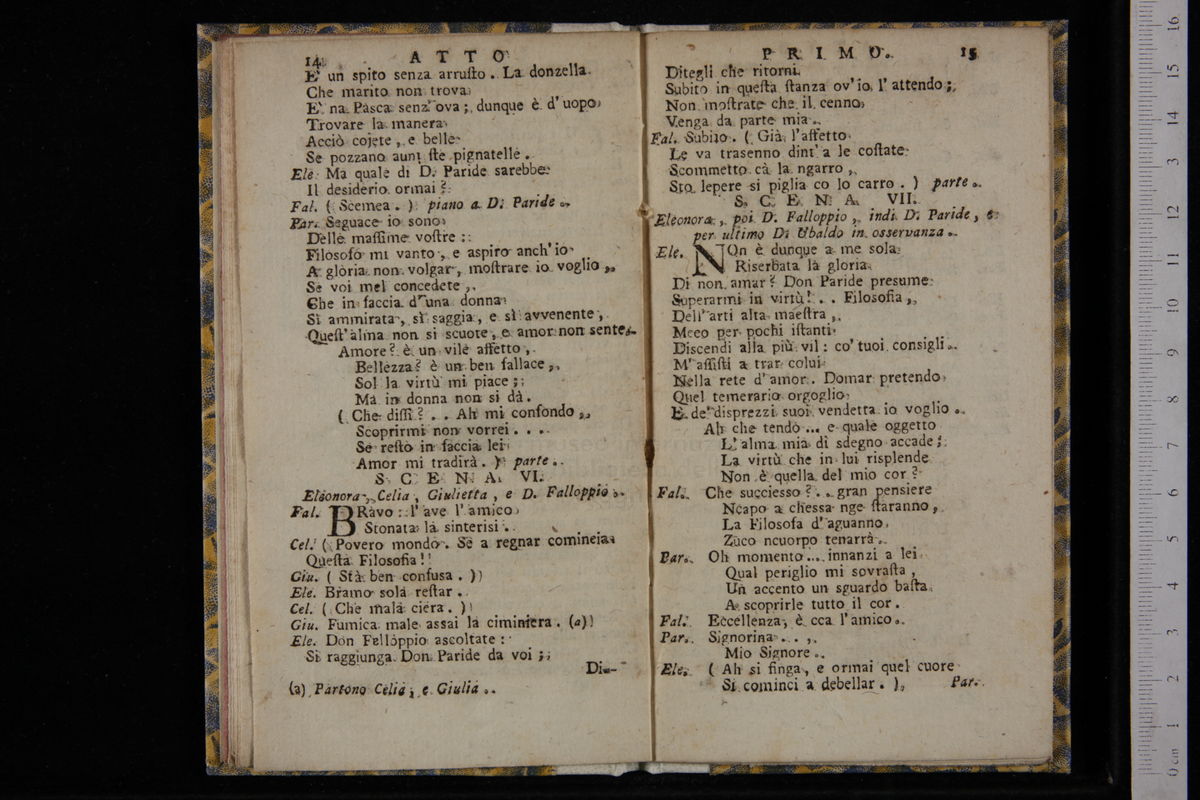 14 ATTO
E' un spito senza arrusto. La donzella
Che marito non trova
E' na Pasca senz' ova; dunque è d' uopo
Trovare la manera
Acciò cojete, e belle
Se pozzano aunì ste pignatelle.
Ele. Ma quale di D. Paride sarebbe
Il desiderio ormai?
Fal. (Scemea.) piano a D. Paride.
Par. Seguace io sono
Delle massime vostre:
Filosofo mi vanto, e aspiro anch'io
A gloria non volgar, mostrare io voglio,
Se voi mel concedete,
Che in faccia d'una donna
Sì ammirata, sì saggia, e sì avvenente,
Quest'alma non si scuote, e amor non sente.
Amore? è un vile affetto,
Bellezza? è un ben fallace,
Sol la virtù mi piace;
Ma in donna non si dà.
(Che dissi?... Ah mi confondo,
Scoprirmi non vorrei....
Se resto in faccia lei
Amor mi tradirà.) parte.
SCENA VI.
Eleonora, Celia, Giulietta, e D. Falloppio.
Fal. BRavo: l'ave l'amico
Stonata la sinterisi.
Cel. (Povero mondo. Se a regnar comincia
Questa Filosofia!
Giu. (Stà ben confusa.)
Ele. Bramo sola restar.
Cel. (Che mala ciera.)
Giu. Fumica male assai la ciminiera. (a)
Ele. Don Fellòppio ascoltate:
Si raggiunga Don Paride da voi;
Di-
(a) Partono Celia, e Giulia.
PRIMO. 15
Ditegli che ritorni
Subito in questa stanza ov'io l'attendo;
Non mostrate che il cenno
Venga da parte mia.
Fal. Subito. (Già l'affetto
Le va trasenno dint' a le costate
Scommetto cà la ngarro,
Sto lepere si piglia co lo carro.) parte.
SCENA VII.
Eleonora, poi D. Falloppio, indi D. Paride, e
per ultimo D. Ubaldo in osservanza.
Ele. NOn è dunque a me sola
Riserbata la gloria
Di non amar? Don Paride presume
Superarmi in virtù!.. Filosofia,
Dell'arti alta maestra,
Meco per pochi istanti
Discendi alla più vil: co' tuoi consigli
M'assisti a trar colui
Nella rete d'amor. Domar pretendo
Quel temerario orgoglio
E de' disprezzi suoi vendetta io voglio.
Ah che tendo... e quale oggetto
L'alma mia di sdegno accade;
La virtù che in lui risplende
Non è quella del mio cor?
Fal. Che successo?.. gran pensiere
Ncapo a chessa nge staranno,
La Filosofa d'aguanno,
Zuco ncuorpo tenarrà.
Par. Oh momento... innanzi a lei
Qual periglio mi sovrasta,
Un accento un sguardo basta
A scoprirle tutto il cor.
Fal. Eccellenza, è cca l'amico.
Par. Signorina...
Mio Signore.
Ele. (Ah si finga, e ormai quel cuore
Si cominci a debellar.)
Par.